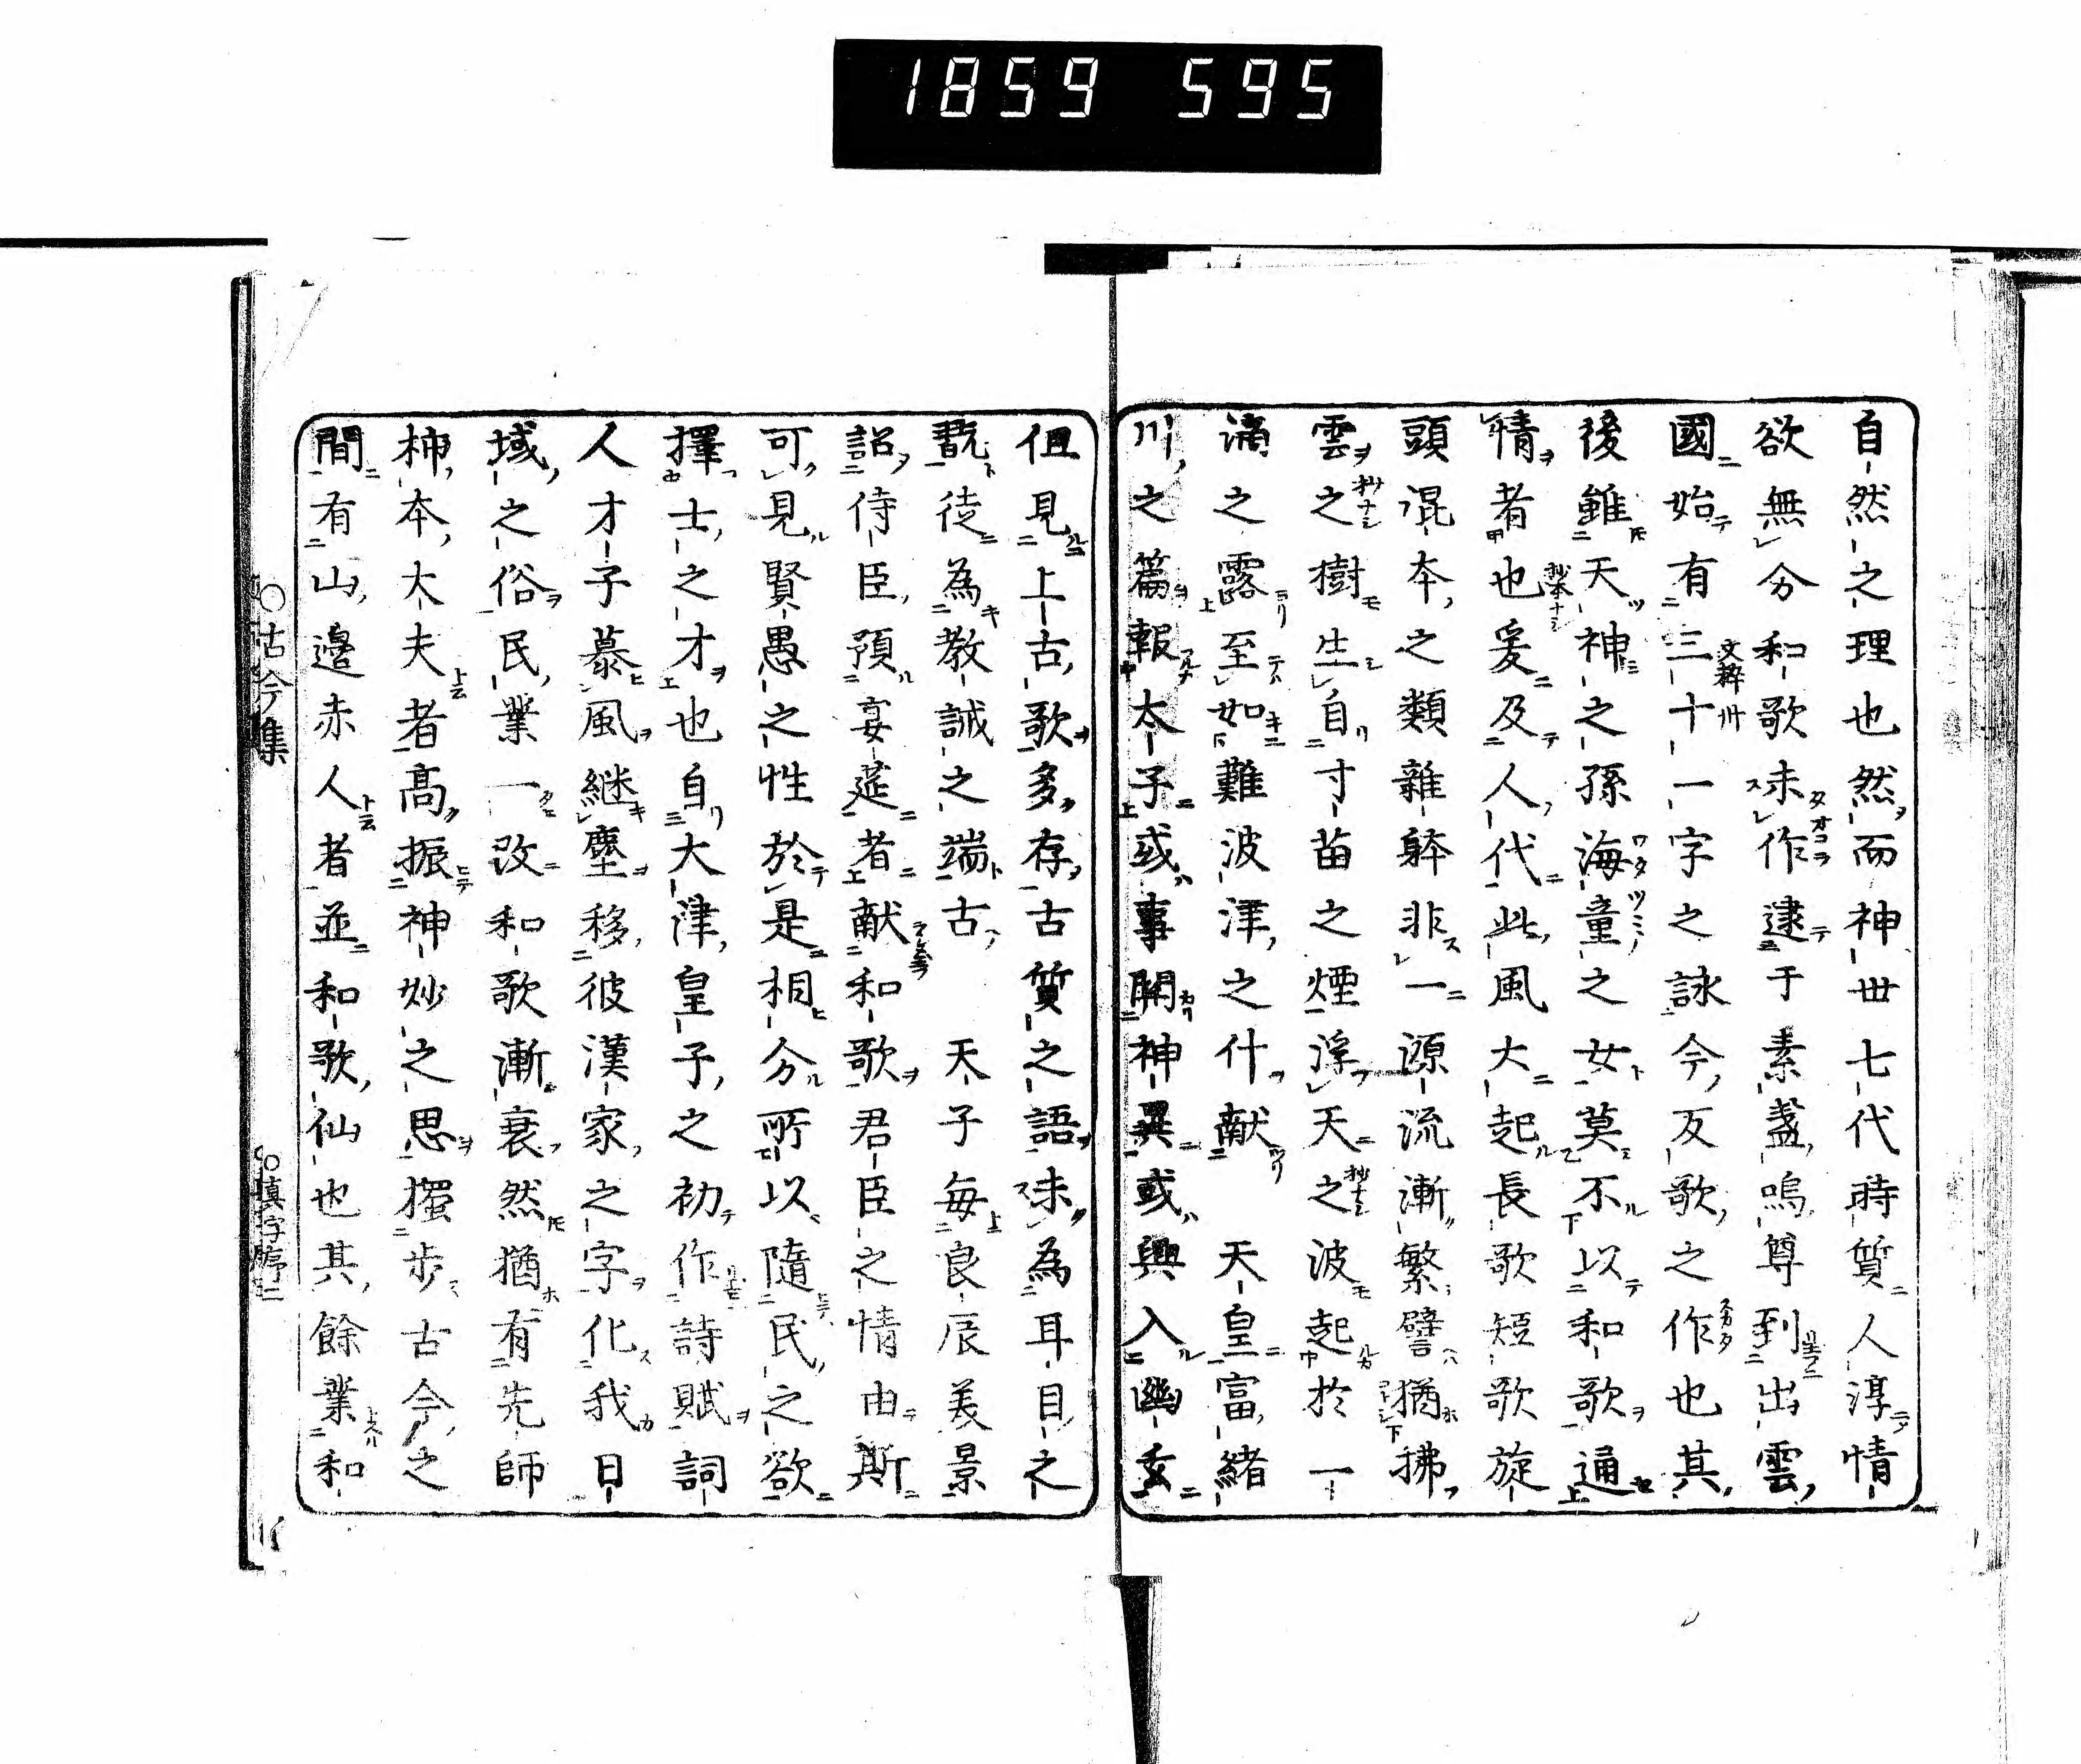 1859 595
自然之理也然而神世七代時質人淳情
欲無分和歌未作逮于素盞嗚尊到出雲
國始有三十一字之詠今反歌之作也其
後雖天神之孫海童之女莫不以和歌通
情者也爰及人代此風大起長歌短歌旋
頭混本之類雜躰非一源流漸繁譬猶拂
雲之樹生自寸苗之煙浮天之波起於一
滴之露至如難波津之什献 天皇富緒
川之篇報太子或事關神異或興入幽玄
但見上古歌多存古質之語未為耳目之
翫徒為教誡之端古 天子每良辰美景
詔侍臣預宴莚者献和歌君臣之情由斯
可見賢愚之性於是相分所以隨民之欲
擇士之才也自大津皇子之初作詩賦詞
人才子慕風継塵移彼漢家之字化我日
域之俗民業一改和歌漸衰然猶有先師
柿本大夫者高振神妙之思獨步古今之
間有山邊赤人者並和歌仙也其餘業和
○古今集
○真字序二